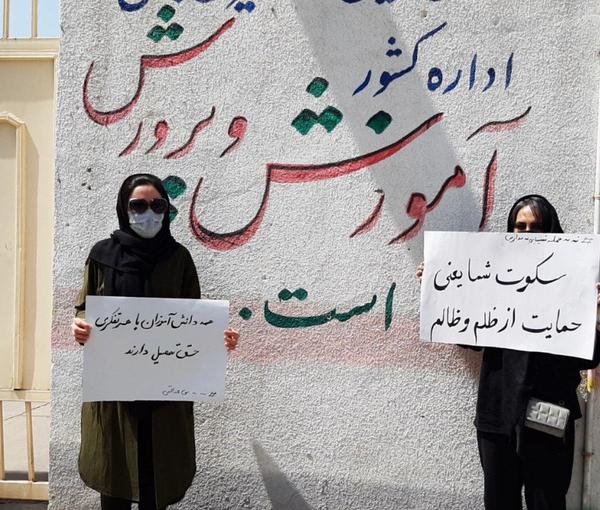 اداره کشور
آموزش و پرورش
است.
همه دانش آموزان با هر تفکری
حق تحصیل دارند
سکوت شما یعنی
حمایت از ظلم و ظالم